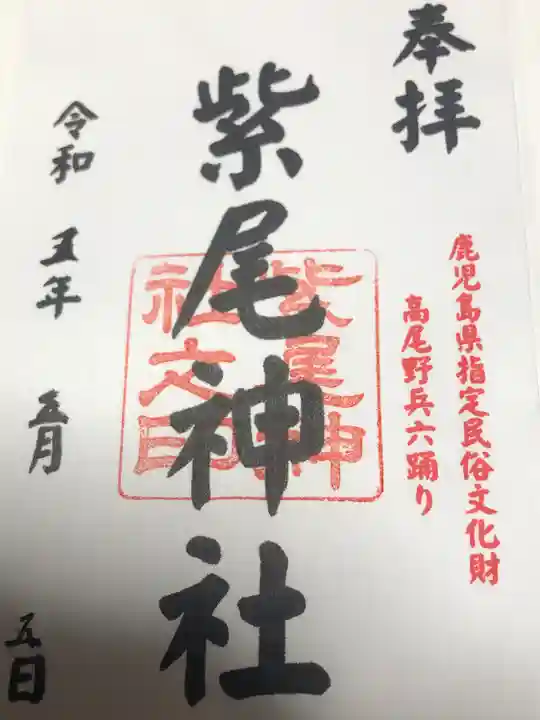 奉拝
鹿児島県指定民俗文化財
高尾野兵六踊り
紫尾神社
紫尾神
社之印
令和五年五月五日